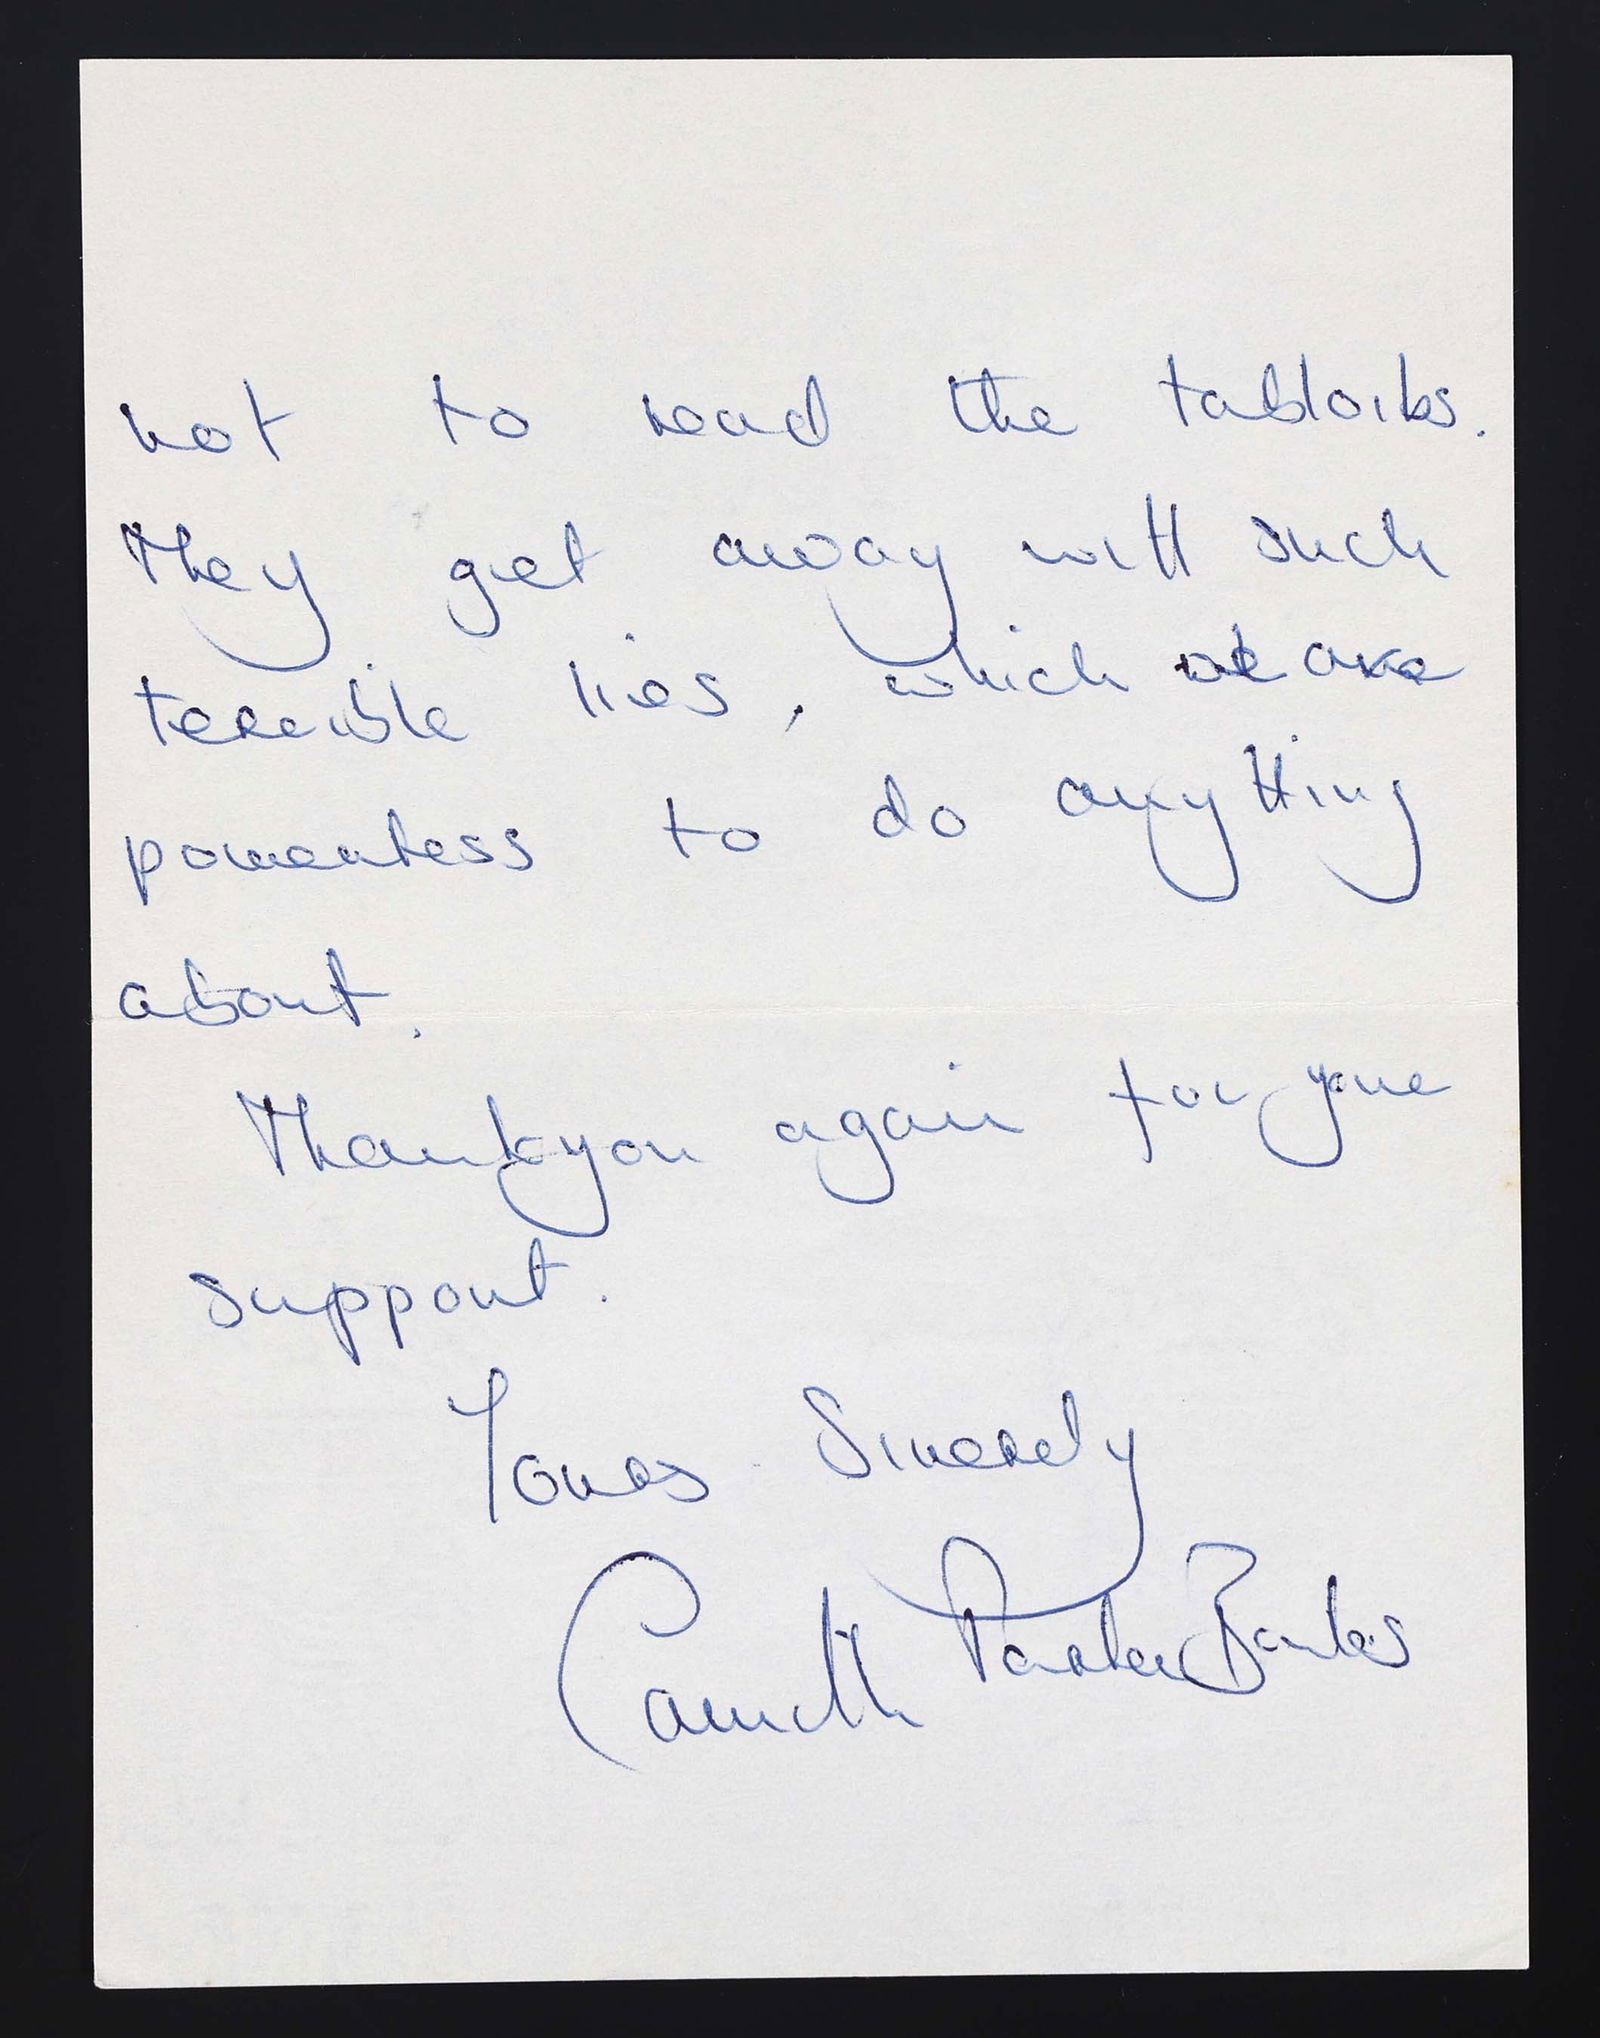 not to read the tabloids.
They get away with such
terrible lies, which we are
powerless to do anything
about.
Thankyou again for your
support.
Yours Sincerely
Camilla Parker Bowles